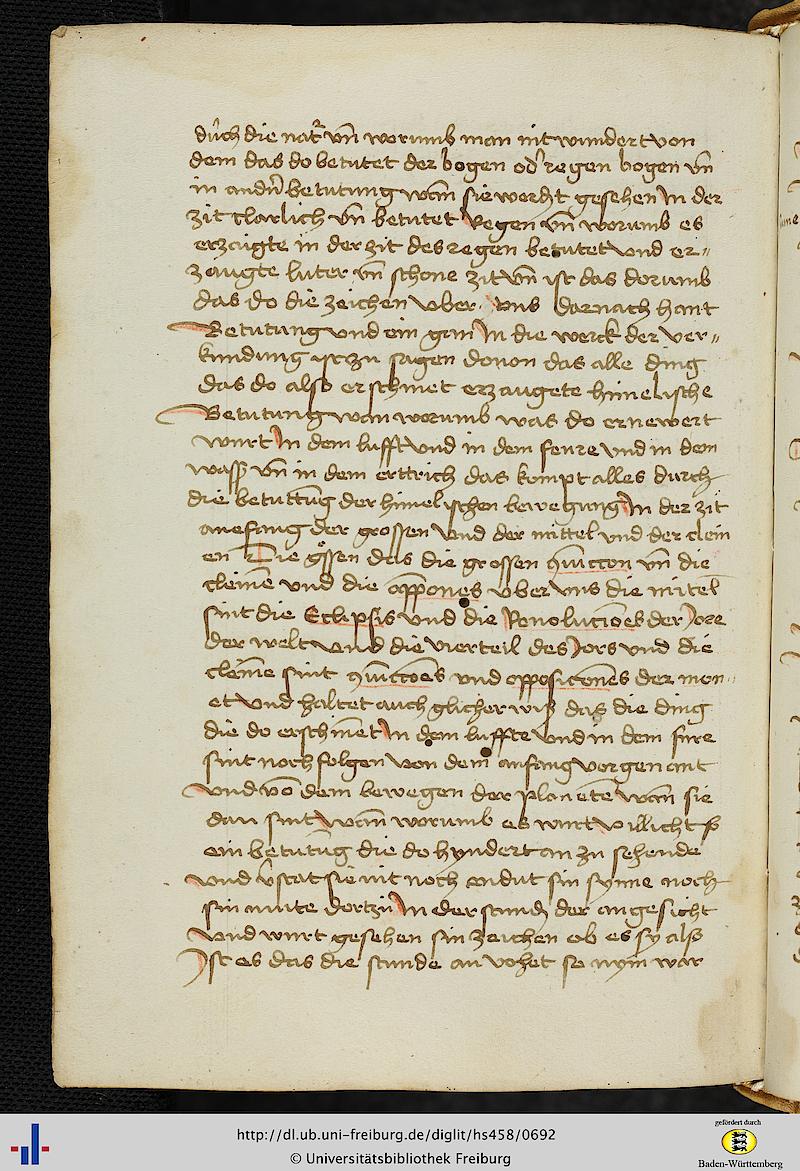 durch die natr vnd worumb man nit wundert von
dem das do betutet der bogen od regen bogen vn
in andn betutung wan sie werdet gesehen In der
zit clarlich vn betutet Regen vn worumb es
erzaigte in der zit des regen betutet vnd er-
zaugte luter vn schone zit vn ist das dorumb
das do die zeichen vber vns darnach hant
Betutung vnd ein gan In die werck der ver-
kundung ist zu sagen douon das alle ding
das do also erschinet erzaugete himelische
Betutung wan worumb was do ernewert
wurt In dem lufft vnd in dem feure vnd in dem
wass vn in dem erttrich das kompt alles durch
die betuttung der himelischen bewegung In der zit
anefang der grossen vnd der mittel vnd der clein
en Die grossen das die grossen 9iuccon vn die
cleinē vnd die oppones vber vns die mitel
sint die Eclipsis vnd die Reuoluciōes der Jore
der welt vnd die vierteil des Jors vnd die
cleine sint 9iucciōes vnd opposiciones der mon-
et vnd haltet auch glicher wiß das die ding
die do erschinet In dem luffte vnd in dem fure
sint noch folgen von dem anfang vorgenant
vnd vō dem bewegen der planetē wan sie
dau sint wan worumb es wurt villicht so
ein betutūg die do hyndert an zu sehende
vnd vstat sie nit noch endut sin synne noch
sin mute dortzu In der stund der angesicht
vnd wurt gesehen sin zeichen ob es sy also
Ist es das die stunde an vohet so nym war
http://dl.ub.uni-freiburg.de/diglit/hs458/0692
© Universitätsbibliothek Freiburg
gefördert durch
Baden-Württemberg